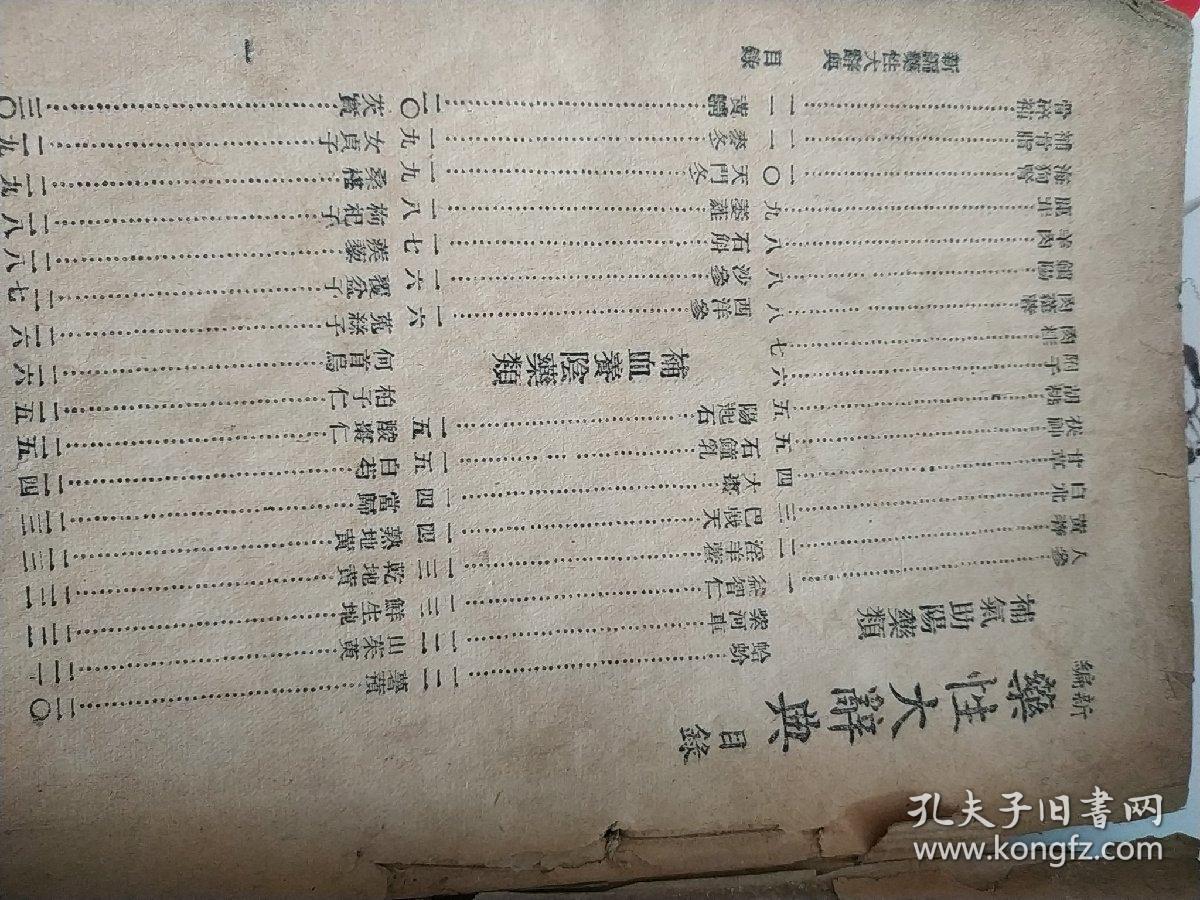 新編藥性大辭典　目錄
一
新編
藥性大辭典目錄
補氣助陽藥類
人參……一
黃耆……二
白朮……三
甘草……四
茯神……五
胡桃……五
附子……六
肉桂……七
肉蓯蓉……八
……八
羊肉……八
鹿茸……九
海狗腎……一〇
補骨脂……一一
骨碎補……一一
蛤蚧……一二
紫河車……一二
益智仁……一三
淫羊藿……一三
巴戟天……一四
大棗……一四
石鐘乳……一五
陽起石……一五
補血養陰藥類
西洋參……一六
沙參……一六
石斛……一七
萎蕤……一八
天門冬……一九
麥冬……一九
黃……二〇
薯蕷……二〇
山茱萸……二一
鮮生地……二二
乾地黃……二二
熟地黃……二三
當歸……二三
白芍……二四
酸棗仁……二五
柏子仁……二五
何首烏……二六
菟絲子……二六
覆盆子……二七
蒺藜……二八
枸杞子……二八
桑椹……二九
女貞子……二九
芡實……三〇
孔夫子旧書网
www.kongfz.com